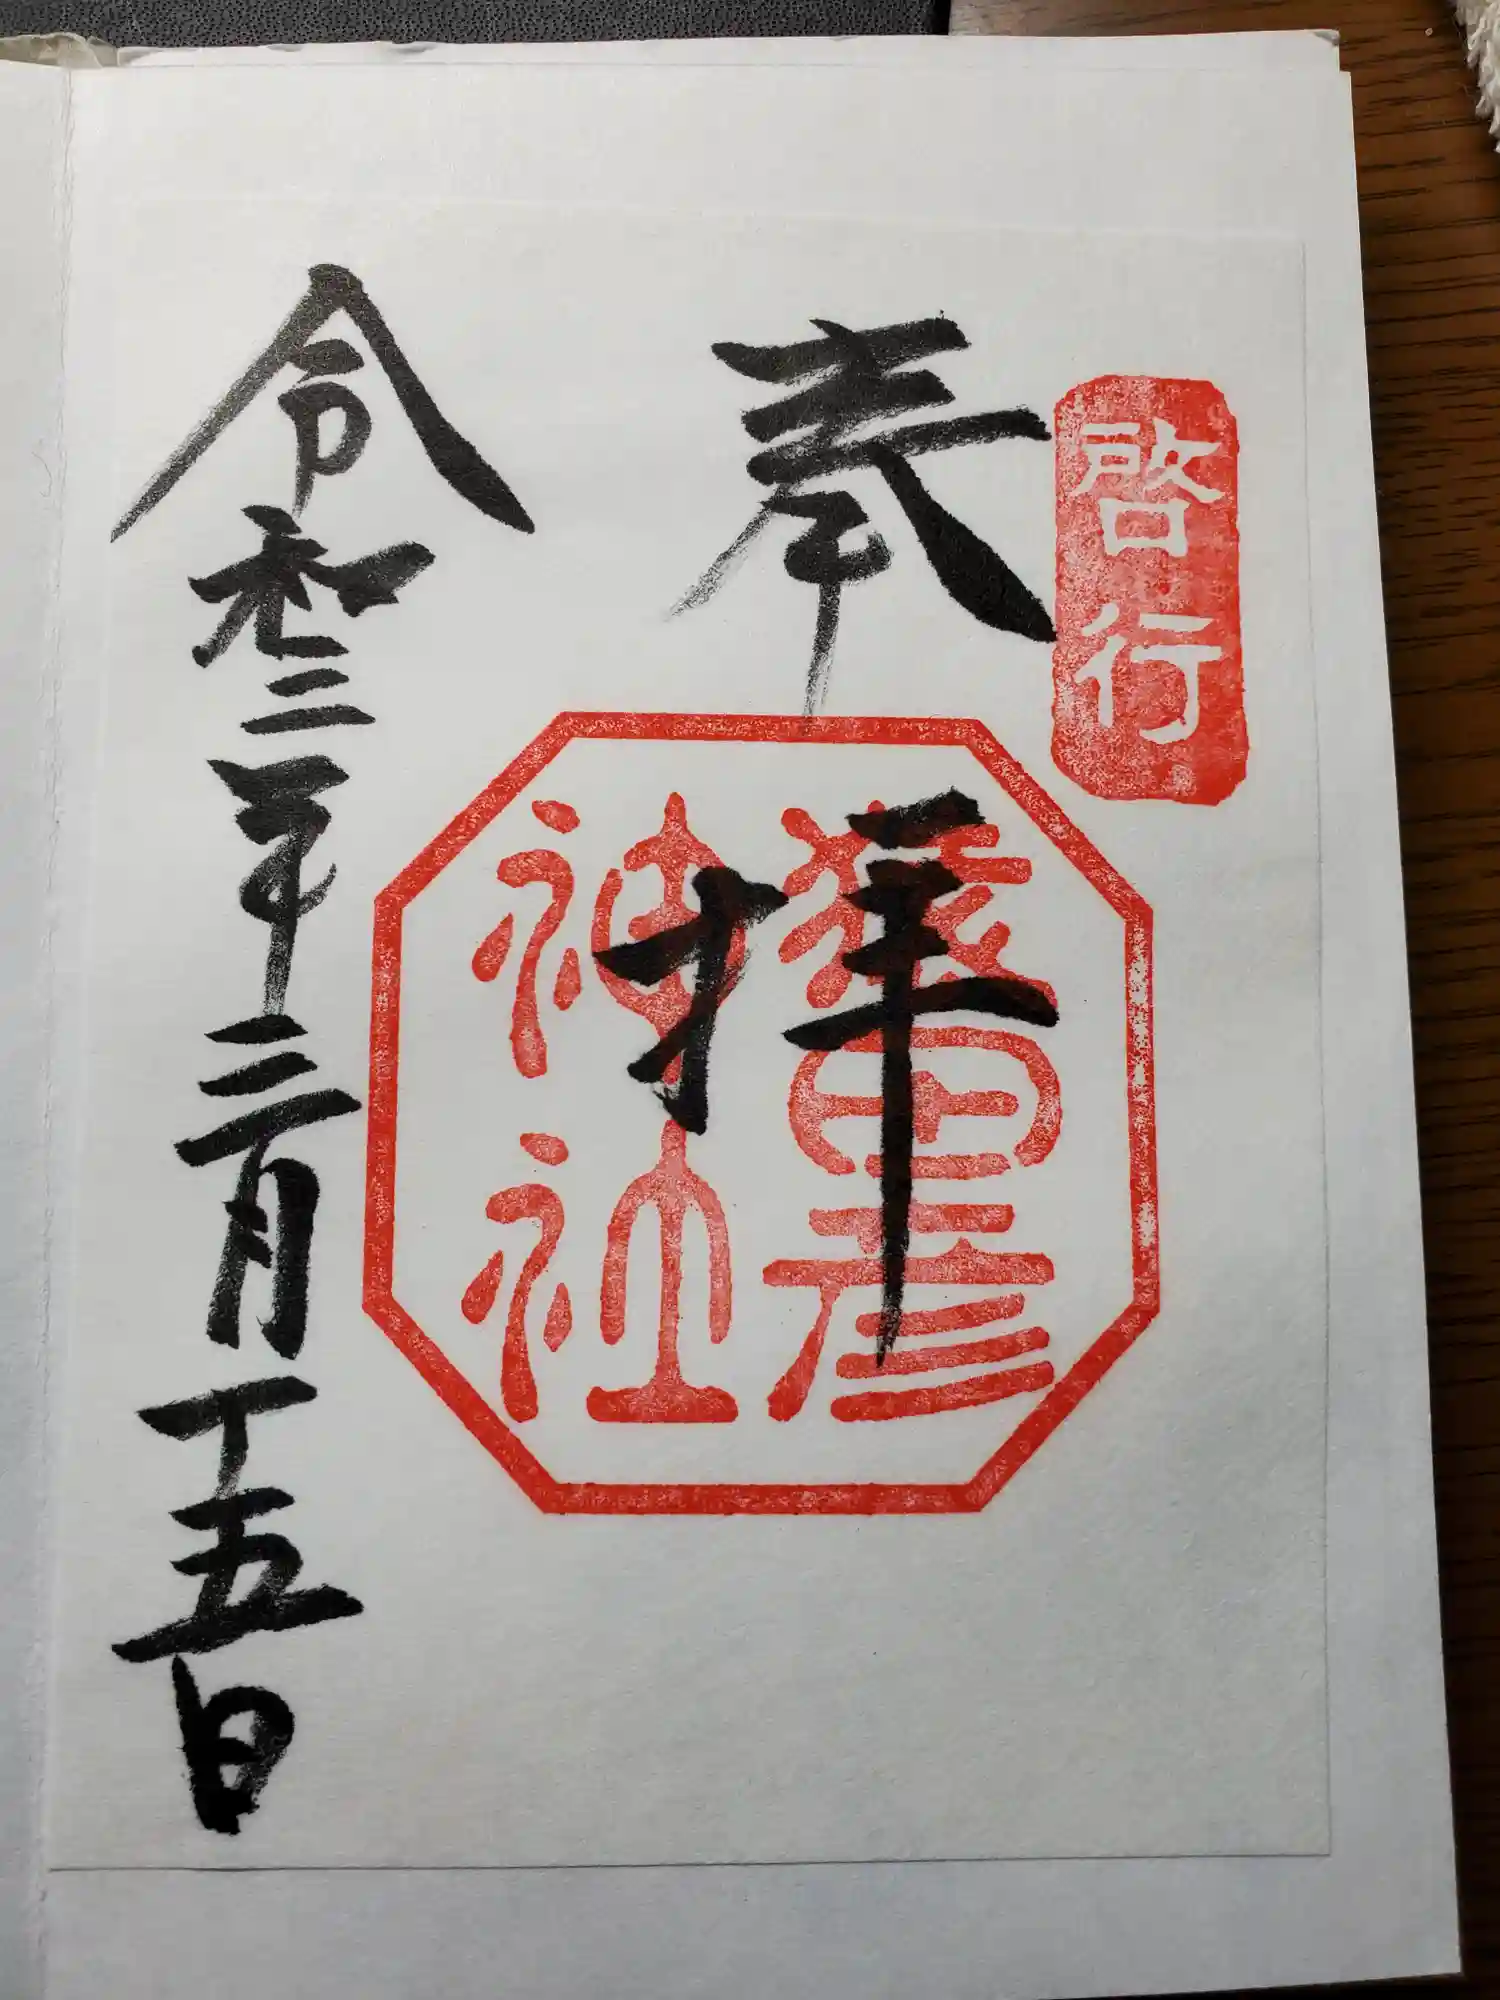 啓行
奉拝
猿田彦
神社
令和三年三月十五日